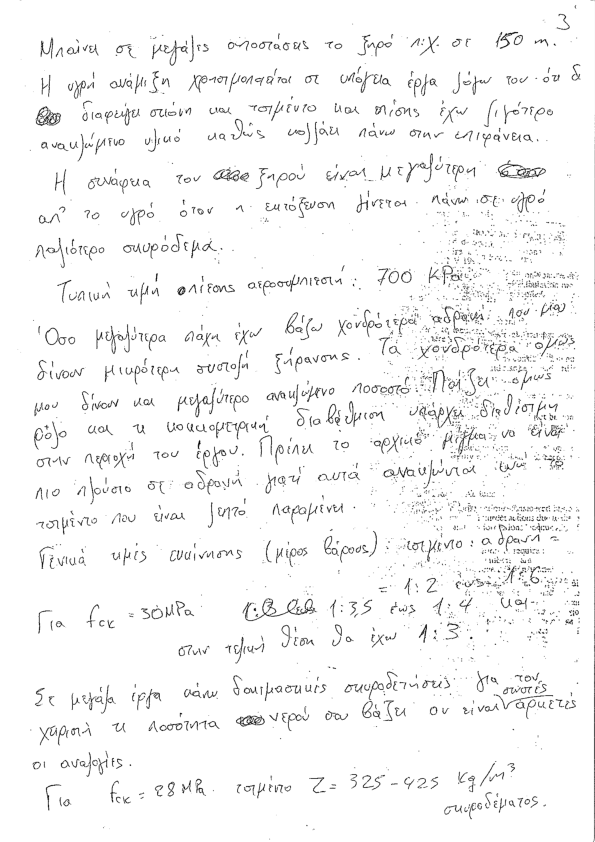 3
Μπαίνει σε μεγάλες αποστάσεις το ξηρό π.χ. σε 150 m.
Η υγρή ανάμιξη χρησιμοποιείται σε υπόγεια έργα λόγω του ότι δ
διαφεύγει σκόνη και τσιμέντο και επίσης έχω λιγότερο
ανακλώμενο υλικό καθώς κολλάει πάνω στην επιφάνεια.
Η συνάφεια του ξηρού είναι μεγαλύτερη
απ' το υγρό όταν η εκτόξευση γίνεται πάνω σε υγρό
παλιότερο σκυρόδεμα.
Τυπική τιμή πίεσης αεροσυμπιεστή: 700 KPa
Όσο μεγαλύτερα πάχη έχω βάζω χονδρότερα αδρανή που μου
δίνουν μικρότερη συστολή ξήρανσης. Τα χονδρότερα όμως
μου δίνουν και μεγαλύτερο ανακλώμενο ποσοστό. Παίζει όμως
ρόλο και τι κοκκομετρική διαβάθμιση υπάρχει διαθέσιμη
στην περιοχή του έργου. Πρέπει το αρχικό μίγμα να είναι
πιο πλούσιο σε αδρανή γιατί αυτά ανακλώνται ενώ το
τσιμέντο που είναι λεπτό παραμένει.
Γενικά τιμές εκκίνησης (μέρος βάρους): τσιμέντο: αδρανή =
= 1:2 έως 1:6
Για fck = 30MPa 1:3,5 έως 1:4 και
στην τελική θέση θα έχω 1:3.
Σε μεγάλα έργα κάνω δοκιμαστικές σκυροδετήσεις για τον
χειριστή τι ποσότητα νερού σου βάζει αν είναι σωστές ναρκετές
οι αναλογίες.
Για fck = 28MPa. τσιμέντο Z = 325-425 Kg/m³
σκυροδέματος.